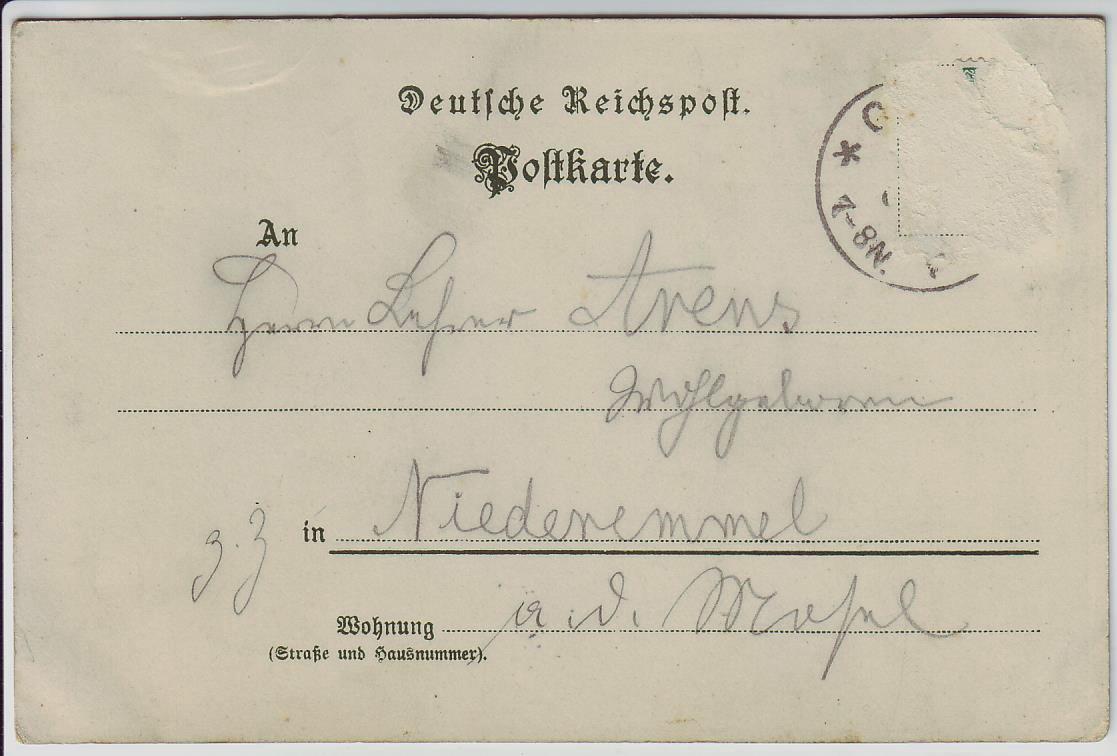 Deutsche Reichspost.
Postkarte.
C
* 7-8N.
An
Herrn Lehrer Arens
Wohlgeboren
in Niederemmel
z. Z.
Wohnung a. d. Mosel
(Straße und Hausnummer).